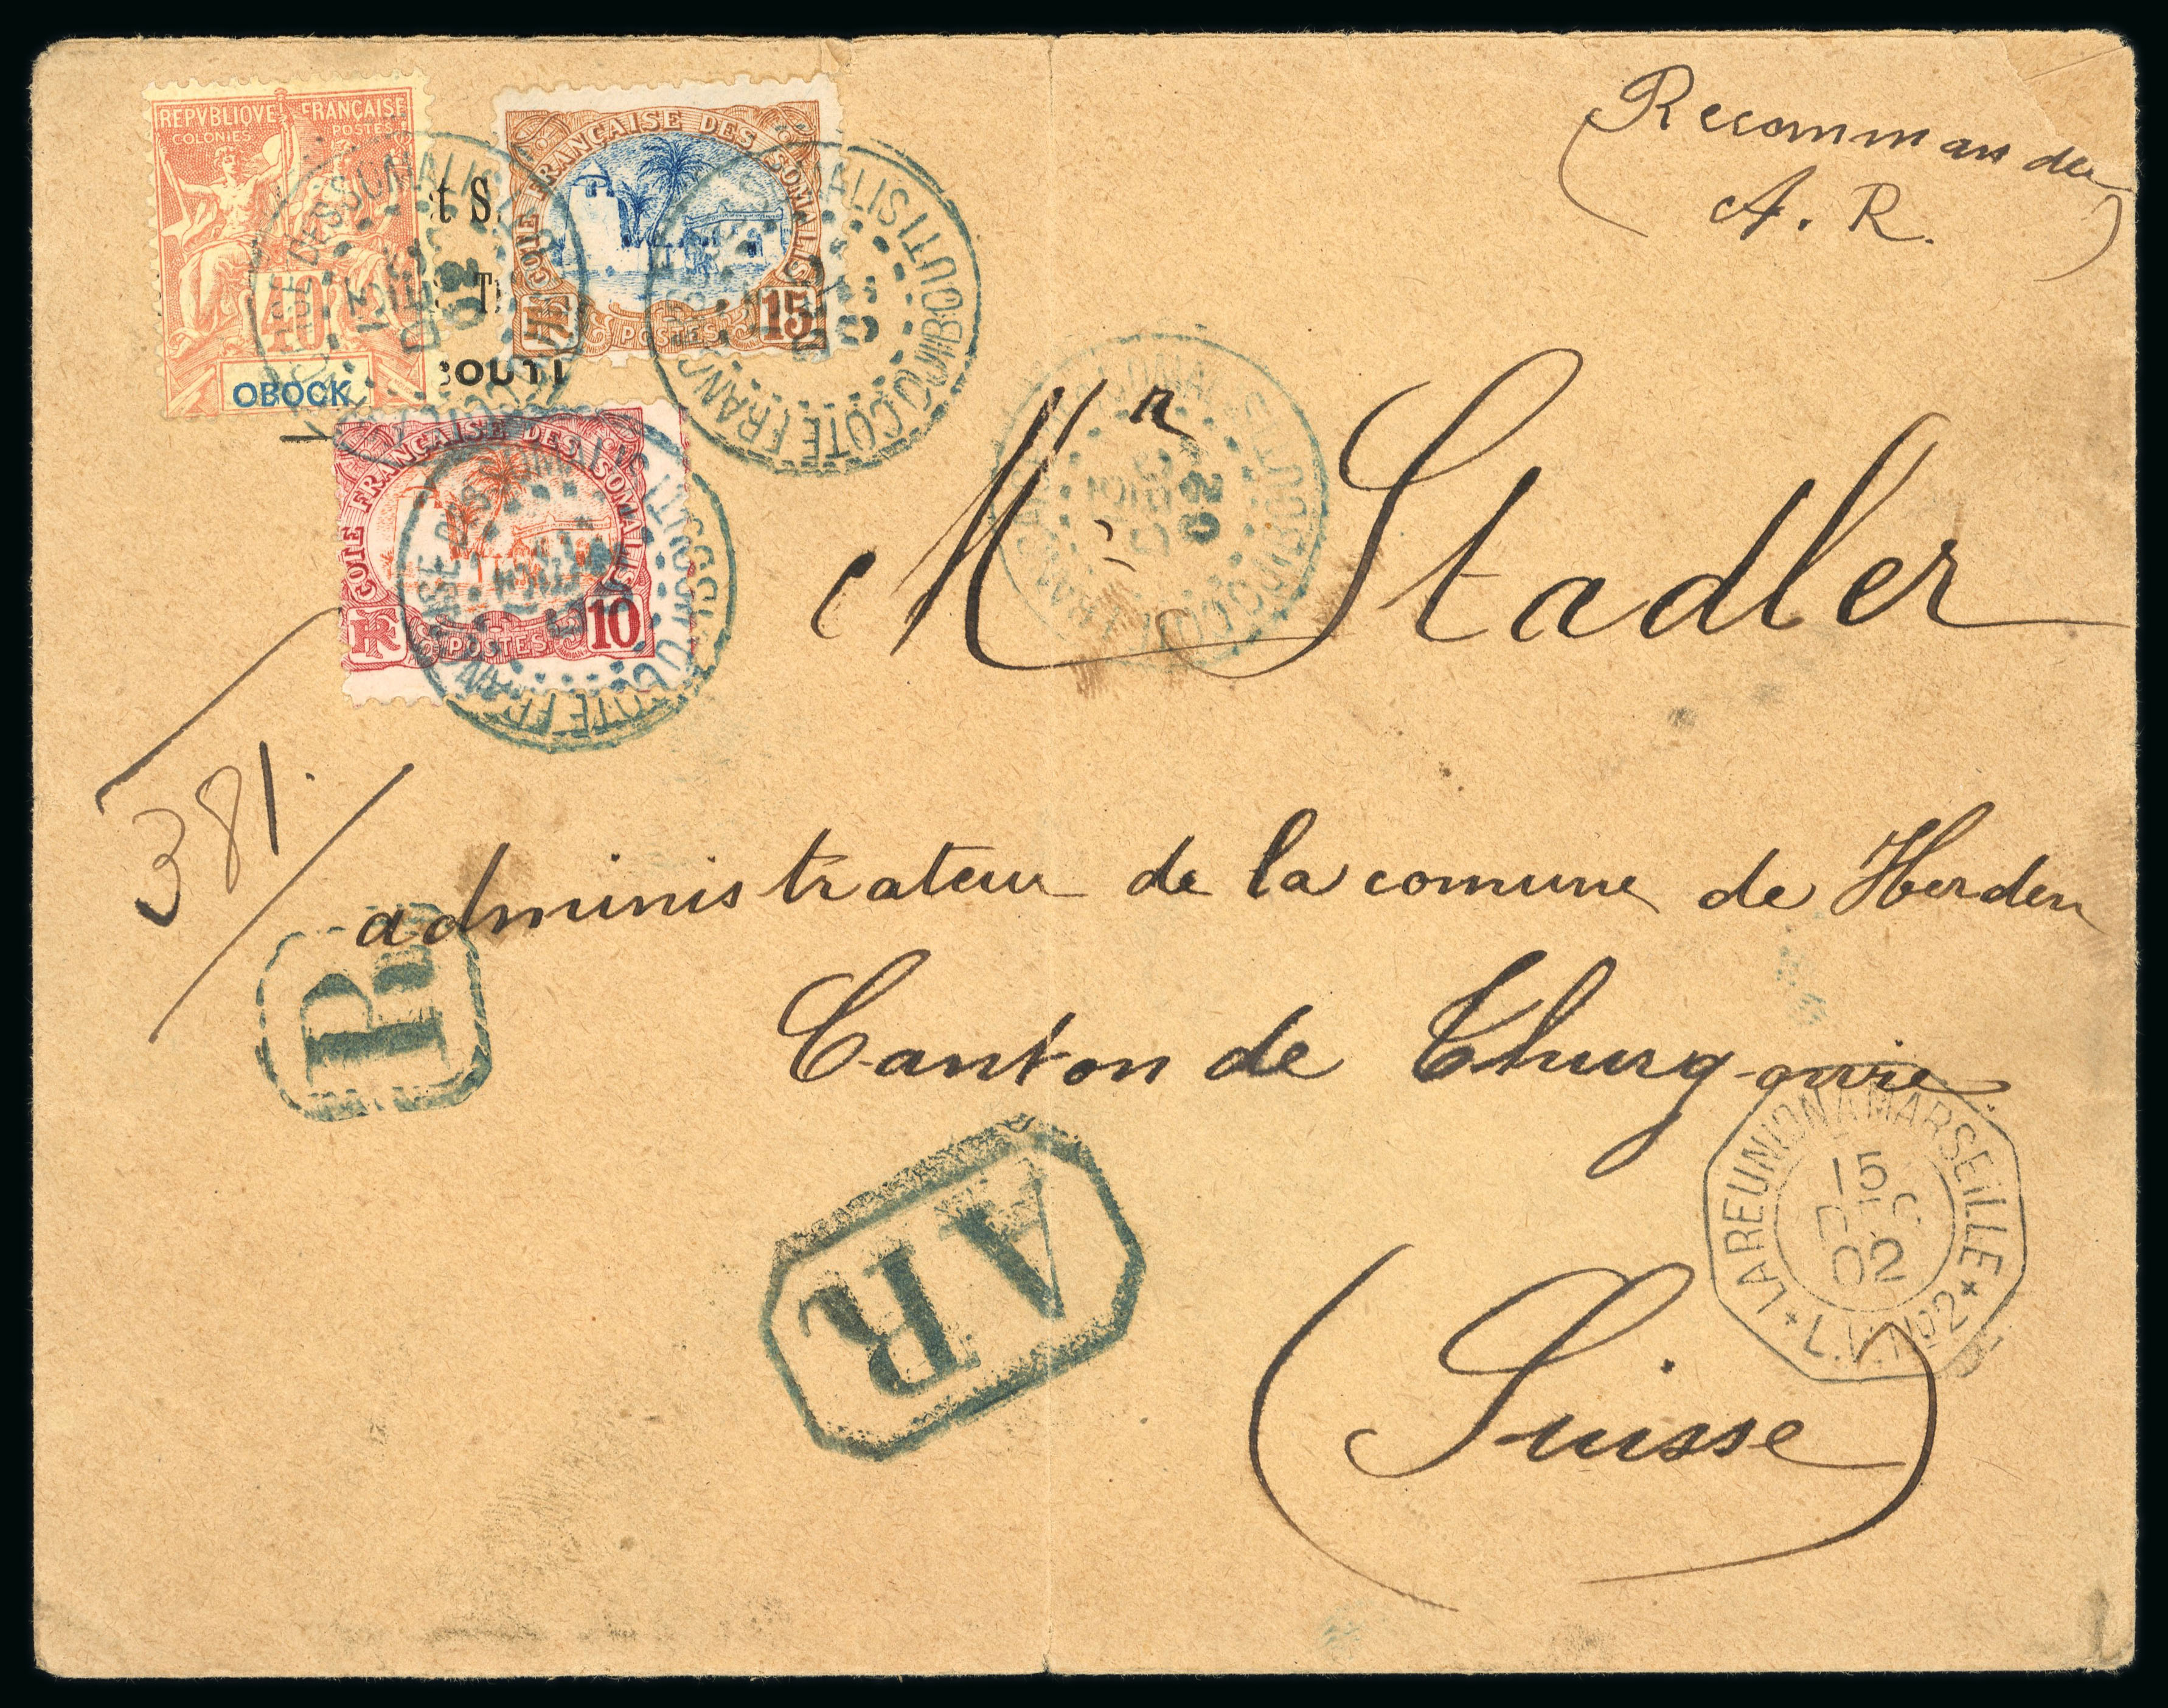 REPVBLIQVE FRANÇAISE
COLONIES POSTES
40
OBOCK
t S.
T
BOUTI
COTE FRANÇAISE DES SOMALIS
15
POSTES
COTE FRANÇAISE DES SOMALIS
RF
POSTES
10
DEC
02
COTE FRANÇAISE DES SOMALIS DJIBOUTI
02
(Recommandée
A. R.)
Mr Stadler
381.
administrateur de la comune de Herdern
Canton de Thurgovie
(Suisse)
R
AR
LA REUNION A MARSEILLE
15
DEC
02
L.V. No 2